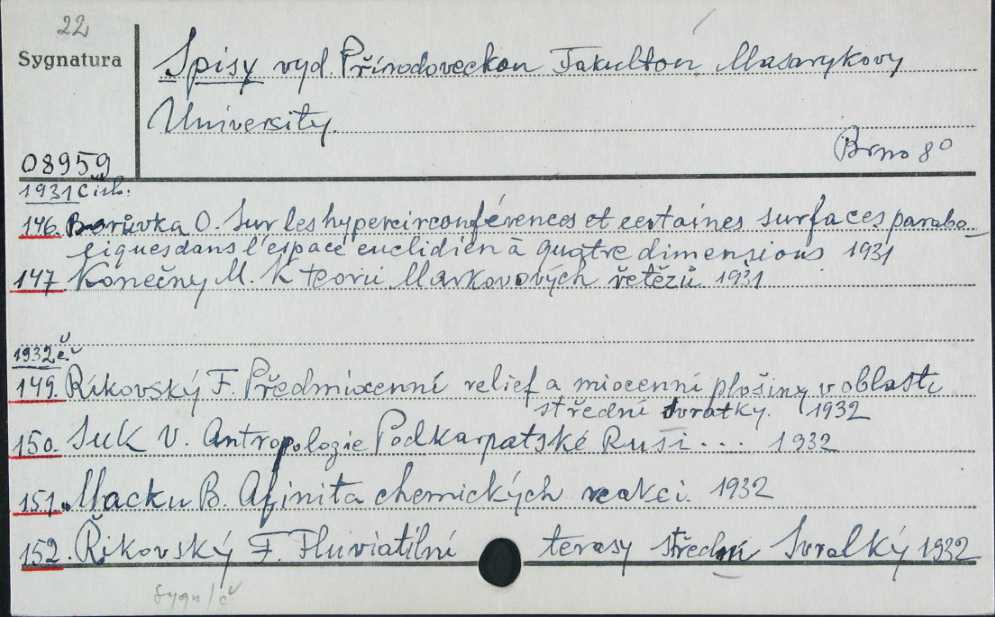 22
Sygnatura
Spisy vyd. Přírodoveckou Fakultou Masarykovy
University.
Brno 8°
08959
1931 čís.
146. Borůvka O. Sur les hypercirconférences et certaines surfaces parabo-
liques dans l'espace euclidien à quatre dimensions 1931
147 Konečny M. K teorii Markovových řetězů 1931
1932 č.
149. Rikovský F. Předmiocenní relief a miocenní plošiny v oblasti
střední Svratky. 1932
150. Suk V. Antropologie Podkarpatské Rusi ... 1932
151. Macku B. Afinita chemických reakci. 1932
152. Řikovský F. Fluviatilní terasy střední Svratký 1932
Sygn/č